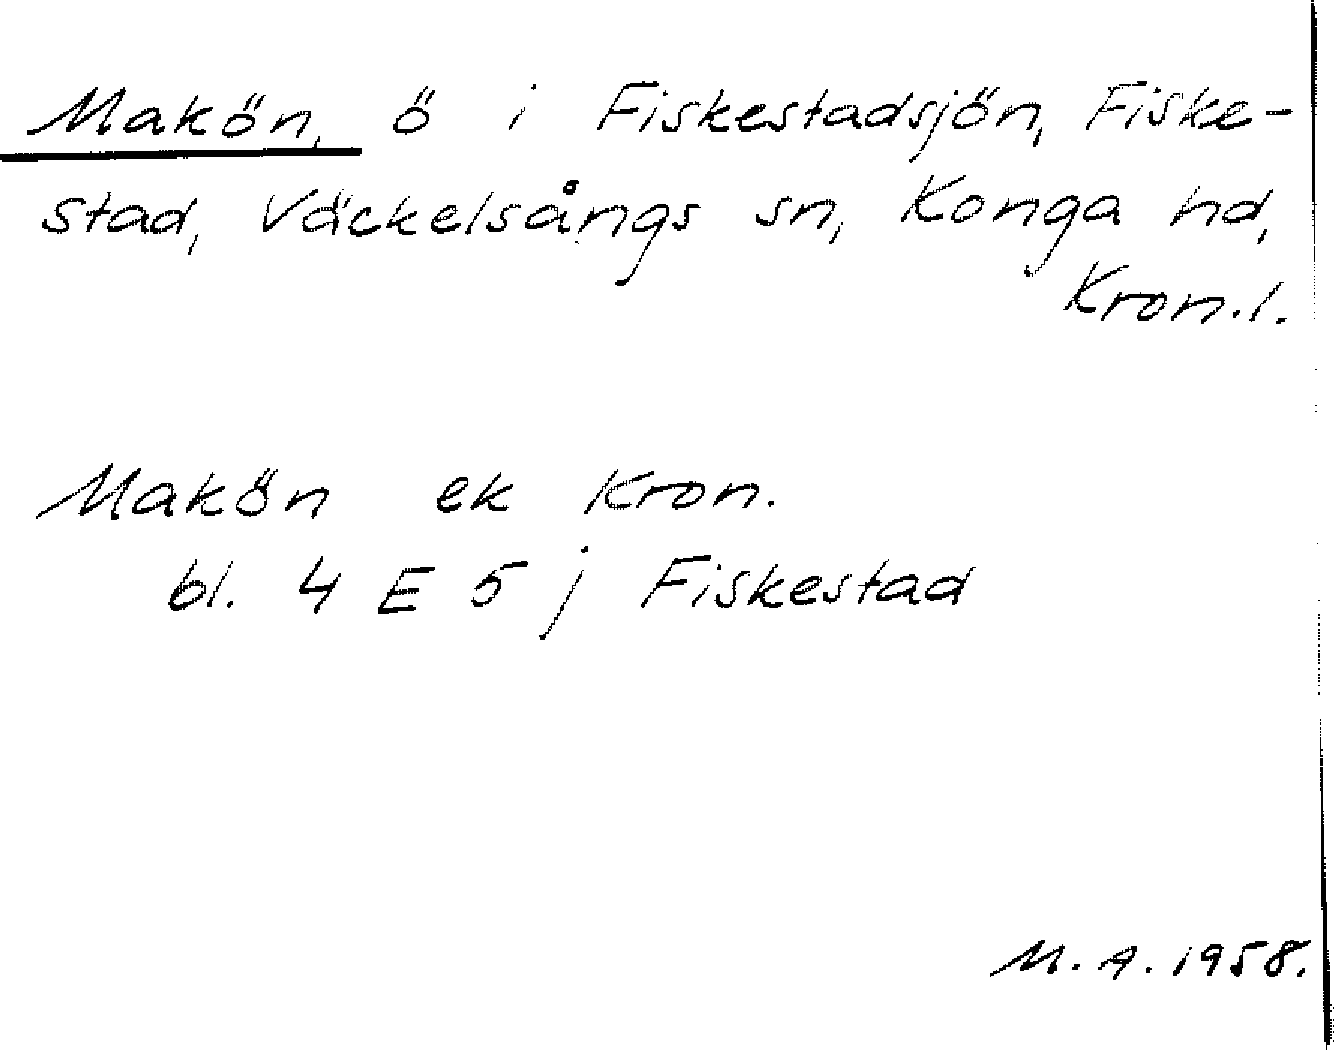 Makön, ö i Fiskestadsjön, Fiske-
stad, Väckelsångs sn, Konga hd,
Kron.l.
Makön ek Kron.
bl. 4 E 5 j Fiskestad
M.A. 1958.